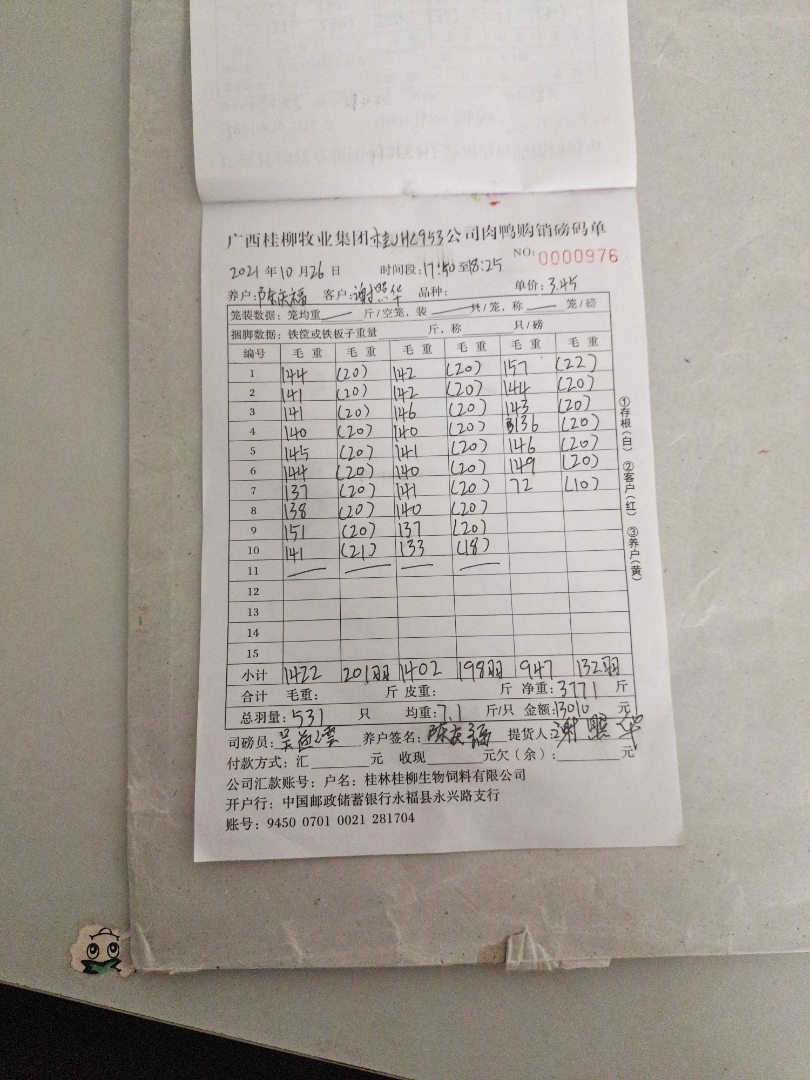 广西桂柳牧业集团桂林953公司肉鸭购销磅码单
NO: 0000976
2021 年 10 月 26 日 时间段: 17:50 至 18:25
养户: 陈庆福 客户: 谢照华 品种: 单价: 3.45
笼装数据: 笼均重 斤/空笼, 装 只/笼, 称 笼/磅
捆脚数据: 铁筐或铁板子重量 斤, 称 只/磅
编号 毛重 毛重 毛重 毛重 毛重 毛重
1 144 (20) 142 (20) 157 (22)
2 141 (20) 142 (20) 144 (20)
3 141 (20) 146 (20) 143 (20)
4 140 (20) 140 (20) 136 (20)
5 145 (20) 141 (20) 146 (20)
6 144 (20) 140 (20) 149 (20)
7 137 (20) 141 (20) 72 (10)
8 138 (20) 140 (20)
9 151 (20) 137 (20)
10 141 (21) 133 (18)
11
12
13
14
15
小计 1422 201羽 1402 198羽 947 132羽
合计 毛重: 斤 皮重: 斤 净重: 3771 斤
总羽量: 531 只 均重: 7.1 斤/只 金额: 13010 元
司磅员: 养户签名: 陈庆福 提货人: 谢照华
付款方式: 汇 元 收现 元欠(余): 元
公司汇款账号: 户名: 桂林桂柳生物饲料有限公司
开户行: 中国邮政储蓄银行永福县永兴路支行
账号: 9450 0701 0021 281704
①存根(白) ②客户(红) ③养户(黄)